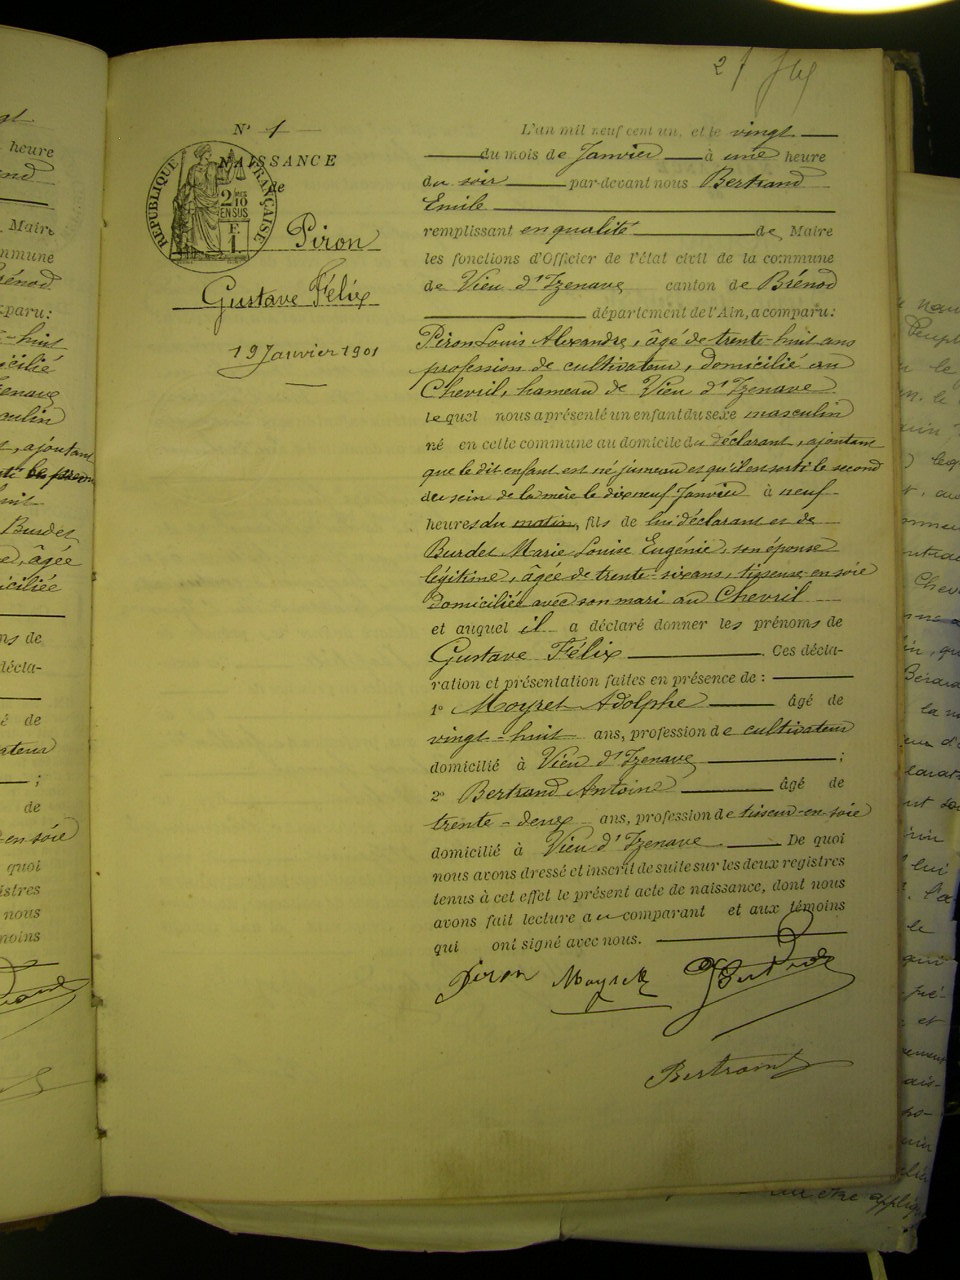 gt
heure
Maire
mmune
rénod
paru:
-huit
icilié
Izenave
culin
t, ajoutant
huit
Burdet
âgée
iciliée
ns de
décla-
é de
;
de
en soie
quoi
istres
nous
moins
2
N° 1
RÉPUBLIQUE FRANÇAISE
2/10
EN SUS
F.
1
NAISSANCE
de
Piron
Gustave Félix
19 Janvier 1901
L'an mil neuf cent un, et le vingt
du mois de Janvier à une heure
du soir par-devant nous Bertrand
Emile
remplissant en qualité de Maire
les fonctions d'Officier de l'état civil de la commune
de Vieu d'Izenave canton de Brénod
département de l'Ain, a comparu:
Piron Louis Alexandre, âgé de trente-huit ans
profession de cultivateur, domicilié au
Chevril, hameau de Vieu d'Izenave
lequel nous a présenté un enfant du sexe masculin
né en cette commune au domicile du déclarant, ajoutant
que le dit enfant est né jumeau et qu'il en sorti le second
du sein de la mère le dix neuf Janvier à neuf
heures du matin, fils de lui déclarant et de
Burdet Marie Louise Eugénie, son épouse
légitime, âgée de trente-six ans, tisseuse en soie
domiciliée avec son mari au Chevril
et auquel il a déclaré donner les prénoms de
Gustave Félix. Ces décla-
ration et présentation faites en présence de :
1° Moyret Adolphe âgé de
vingt-huit ans, profession de cultivateur
domicilié à Vieu d'Izenave ;
2° Bertrand Antoine âgé de
trente-deux ans, profession de tisseur en soie
domicilié à Vieu d'Izenave De quoi
nous avons dressé et inscrit de suite sur les deux registres
tenus à cet effet le présent acte de naissance, dont nous
avons fait lecture au comparant et aux témoins
qui ont signé avec nous.
Piron Moyret
Bertrand
le
Chev
lui
le
et
être